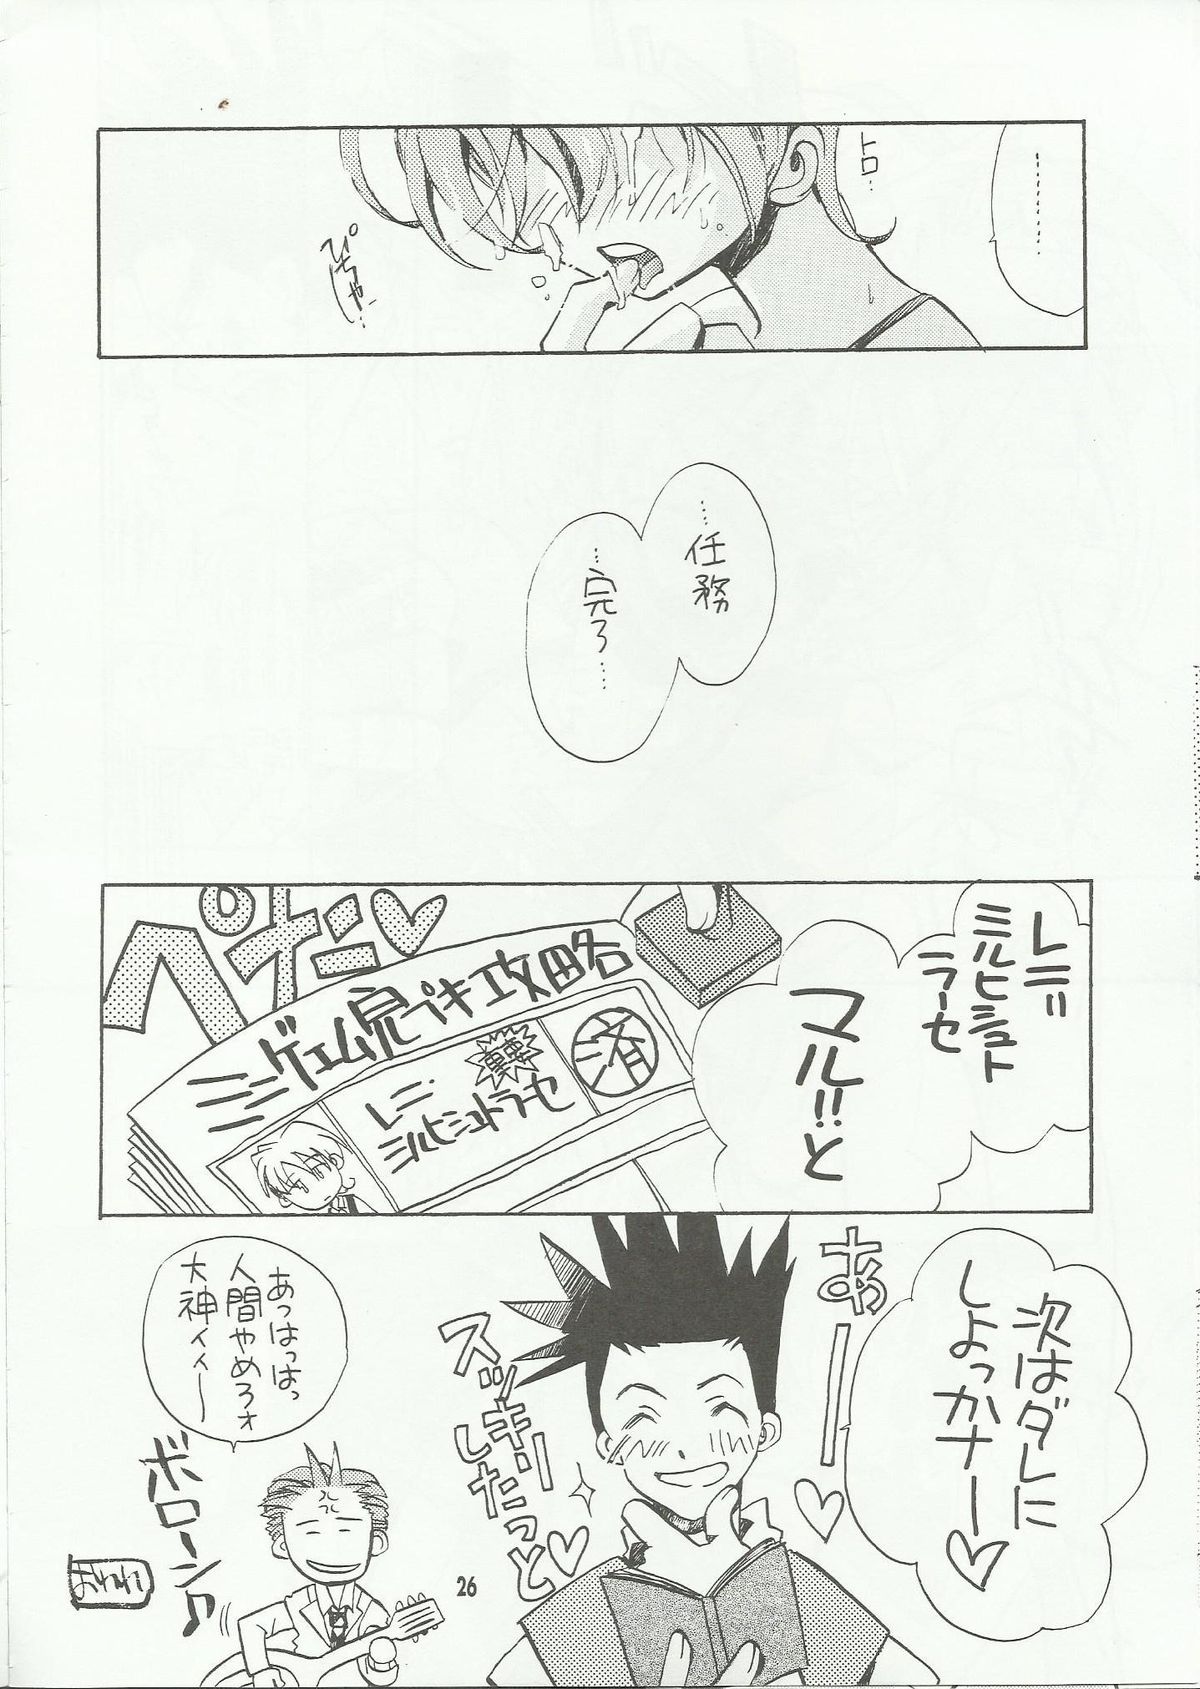 ………
トロ…
ぴちゃ…
……任務
…完了……
レニ
ミルヒシュト
ラーセ
マル!!と
ペタ
ミニゲーム完ペキ攻略
重要
レニ・
ミルヒシュトラーセ
済
次はダレに
しよっかナー♡
あーー♡
スッキリ
したっと♡
あっはっはっ
人間やめろォ
大神ィィ〜
ボローン♪
おわり
26